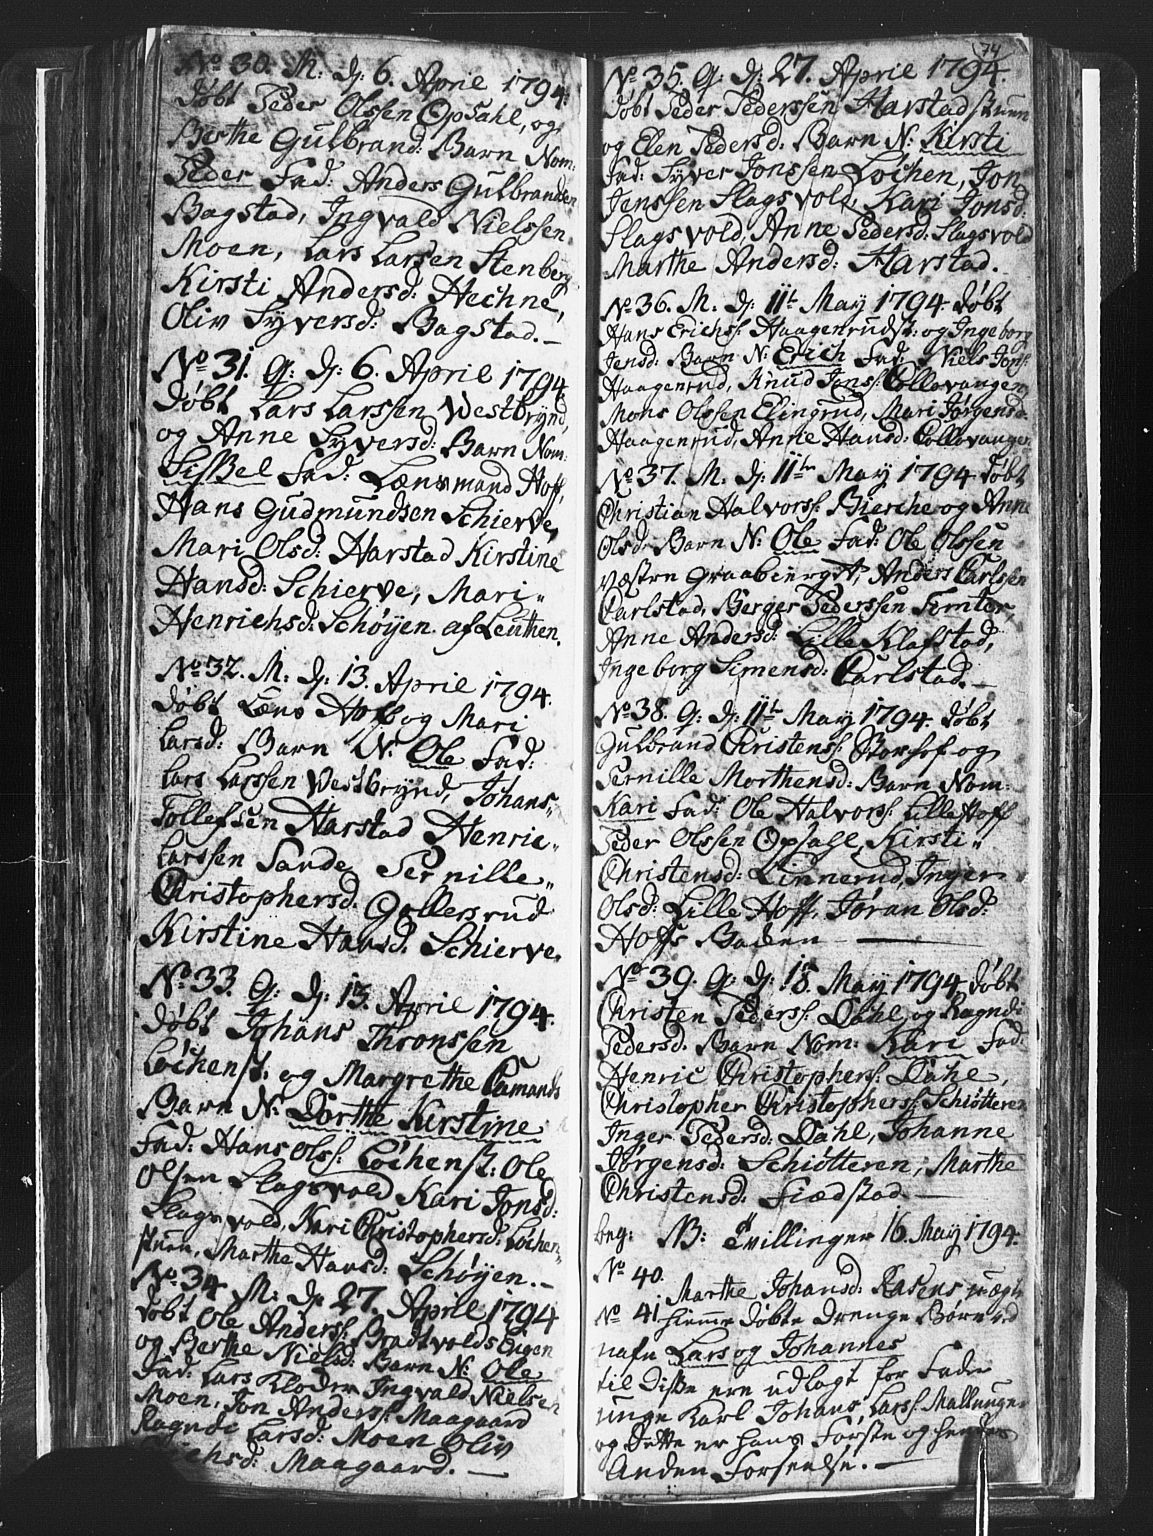 No 30. M: D: 6. April 1794.
Døbt Peder Olssen Opsahl, og
Berthe Gulbrand: Barn Nom:
Peder Fad: Anders Gulbrandsen
Bagstad, Ingvald Nielssen
Moen, Lars Larsen Stenberg
Kirsti Andersd: Hechne,
Oliv Syversd: Bagstad. —
No 31. G: D: 6. April 1794.
Døbt Lars Larssen Vestbrynd,
og Anne Syversd: Barn Nom:
Sissel Fad: Lænsmand Hoff,
Hans Gudmundsen Schierve,
Mari Olsd: Harstad Kirstine
Hansd: Schierve, Mari
Henrichsd: Schøyen af Leuthen.
No 32. M. D: 13. April 1794.
Døbt Læns Hoff og Mari
Larsd: Barn N: Ole Fad:
Lars Larssen Vestbrynd, Johans
Tollefsen Harstad Henric
Larssen Sande Pernille
Christophersd. Gollersrud
Kirstine Hansd. Schierve.
No 33. G: D: 13. April 1794.
Døbt Johans Thronssen
Løchenst: og Margrethe Camands
Barn N: Dorthe Kirstine
Fad: Hans Olss: Løchenst: Ole
Olsen Slagsvold Kari Jonsd:
Slagsvold, Kari Christophersd: Løchen
stuen, Marthe Hansd: Schøyen. —
No 34 M: D: 27. April 1794
Døbt Ole Anderss: Bradtvolds Engen
og Berthe Nielsd: Barn N: Ole
Fad: Lars Kloden Ingvald Nielsen
Moen, Jon Anderss: Maagaard
Ragnde Larsd: Moen Oliv
Erichsd: Maagaard. —
74
No 35. G: D: 27. April 1794.
Døbt Peder Pederssen Harstadstuen
og Elen Pedersd: Barn N: Kirsti
Fad: Syver Jonssen Løchen, Jon
Jenssen Slagsvold, Kari Jonsd:
Slagsvold, Anne Pedersd. Slagsvold
Marthe Andersd: Harstad.
No 36. M. D: 11te May 1794. Døbt
Hans Erichs: Haagenrudst: og Ingeborg
Jensd: Barn N: Erich Fad: Niels Jons:
Haagenrud, Knud Jons: Collovangen
Mons Olssen Elingrud, Mari Jørgensd:
Haagenrud, Anne Hansd: Collovangen
No 37. M. D: 11te May 1794 Døbt
Christian Halvorss: Bierche og Anne
Olsd: Barn N: Ole Fad: Ole Olssen
væstre Graabierget, Anders Carlssen
Carlstad, Berger Pederssen
Anne Andersd: Lille Klafstad,
Ingeborg Simensd: Carlstad. —
No 38. G: D: 11te May 1794. Døbt
Gulbrand Christens: Storhof og
Pernille Morthensd: Barn Nom:
Kari Fad: Ole Halvorss: Lille Hoff
Peder Olssen Opsahl, Kirsti
Christensd: Linnerud, Inger
Olsd: Lille Hoff, Jøran Olsd:
Hoffs Baden —
No 39. G: D: 18. May 1794. Døbt
Christen Pederss: Dahl og Ragndi
Pedersd: Barn Nom: Kari Fad:
Henric Christophers: Dahle,
Christopher Christophers: Schiøtteren
Inger Pedersd: Dahl, Johanne
Jørgensd: Schiøtteren, Marthe
Christensd: Fiædstad —
beg: NB: Tvillinger 16. May 1794.
No 40.
Marthe Johansd: Rasens uægte
No 41 hiemme døbte Drenge Børn ved
nafn Lars og Johannes
til Disse ere udlagt for Fader
unge Karl Johans Larss: Mallunger
og Dette er hans Første og hendes
Anden Forseelse. —